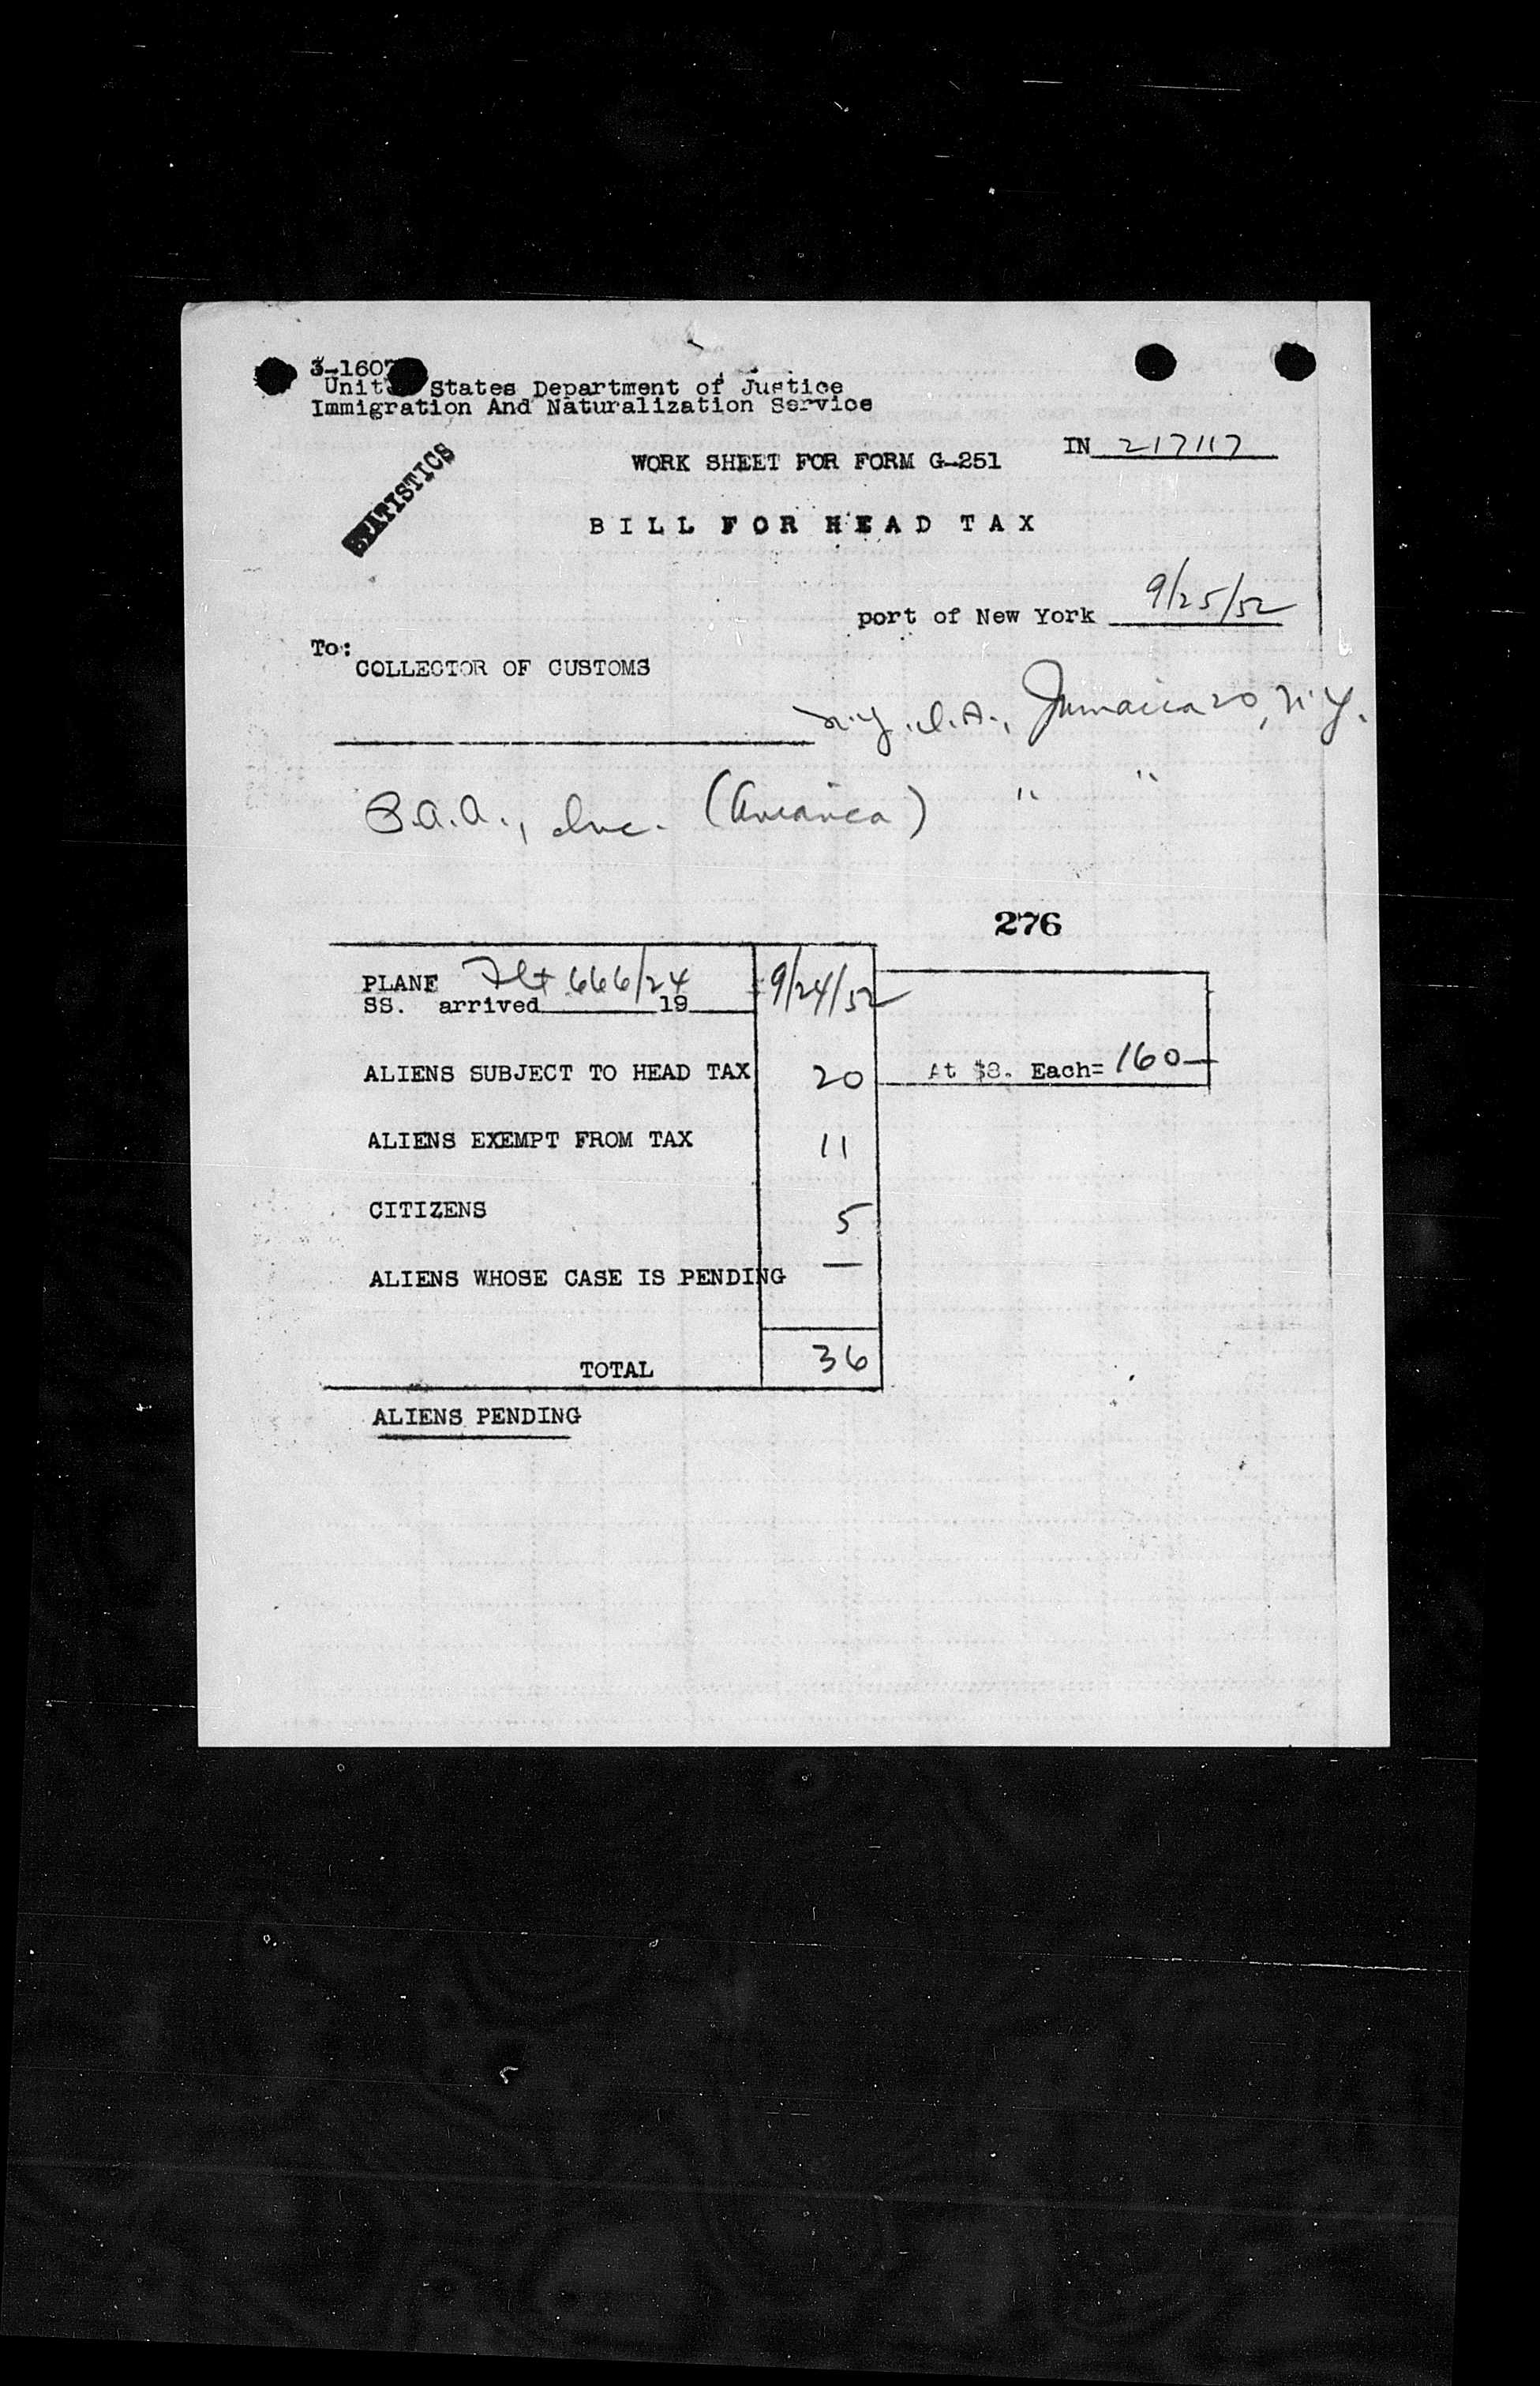 3-1607
United States Department of Justice
Immigration And Naturalization Service
STATISTICS
IN 217117
WORK SHEET FOR FORM G-251
BILL FOR HEAD TAX
port of New York 9/25/52
To:
COLLECTOR OF CUSTOMS
N.Y.I.A., Jamaica 20, N.Y.
P.A.A., Inc. (America) " "
276
PLANE Flt 666/24 9/24/52
SS. arrived 19
ALIENS SUBJECT TO HEAD TAX 20 At $8. Each= 160—
ALIENS EXEMPT FROM TAX 11
CITIZENS 5
ALIENS WHOSE CASE IS PENDING —
TOTAL 36
ALIENS PENDING